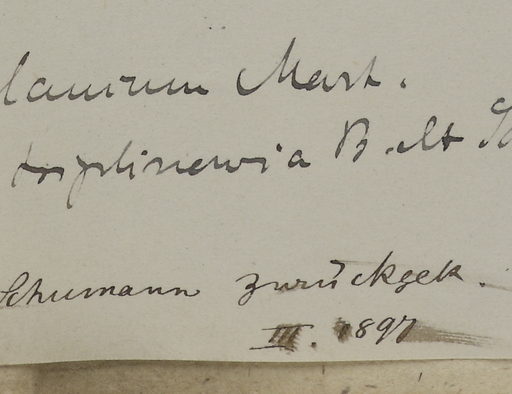 lanirum Mart.
triplinervia B. et
Schumann zurückgek.
III. 1897